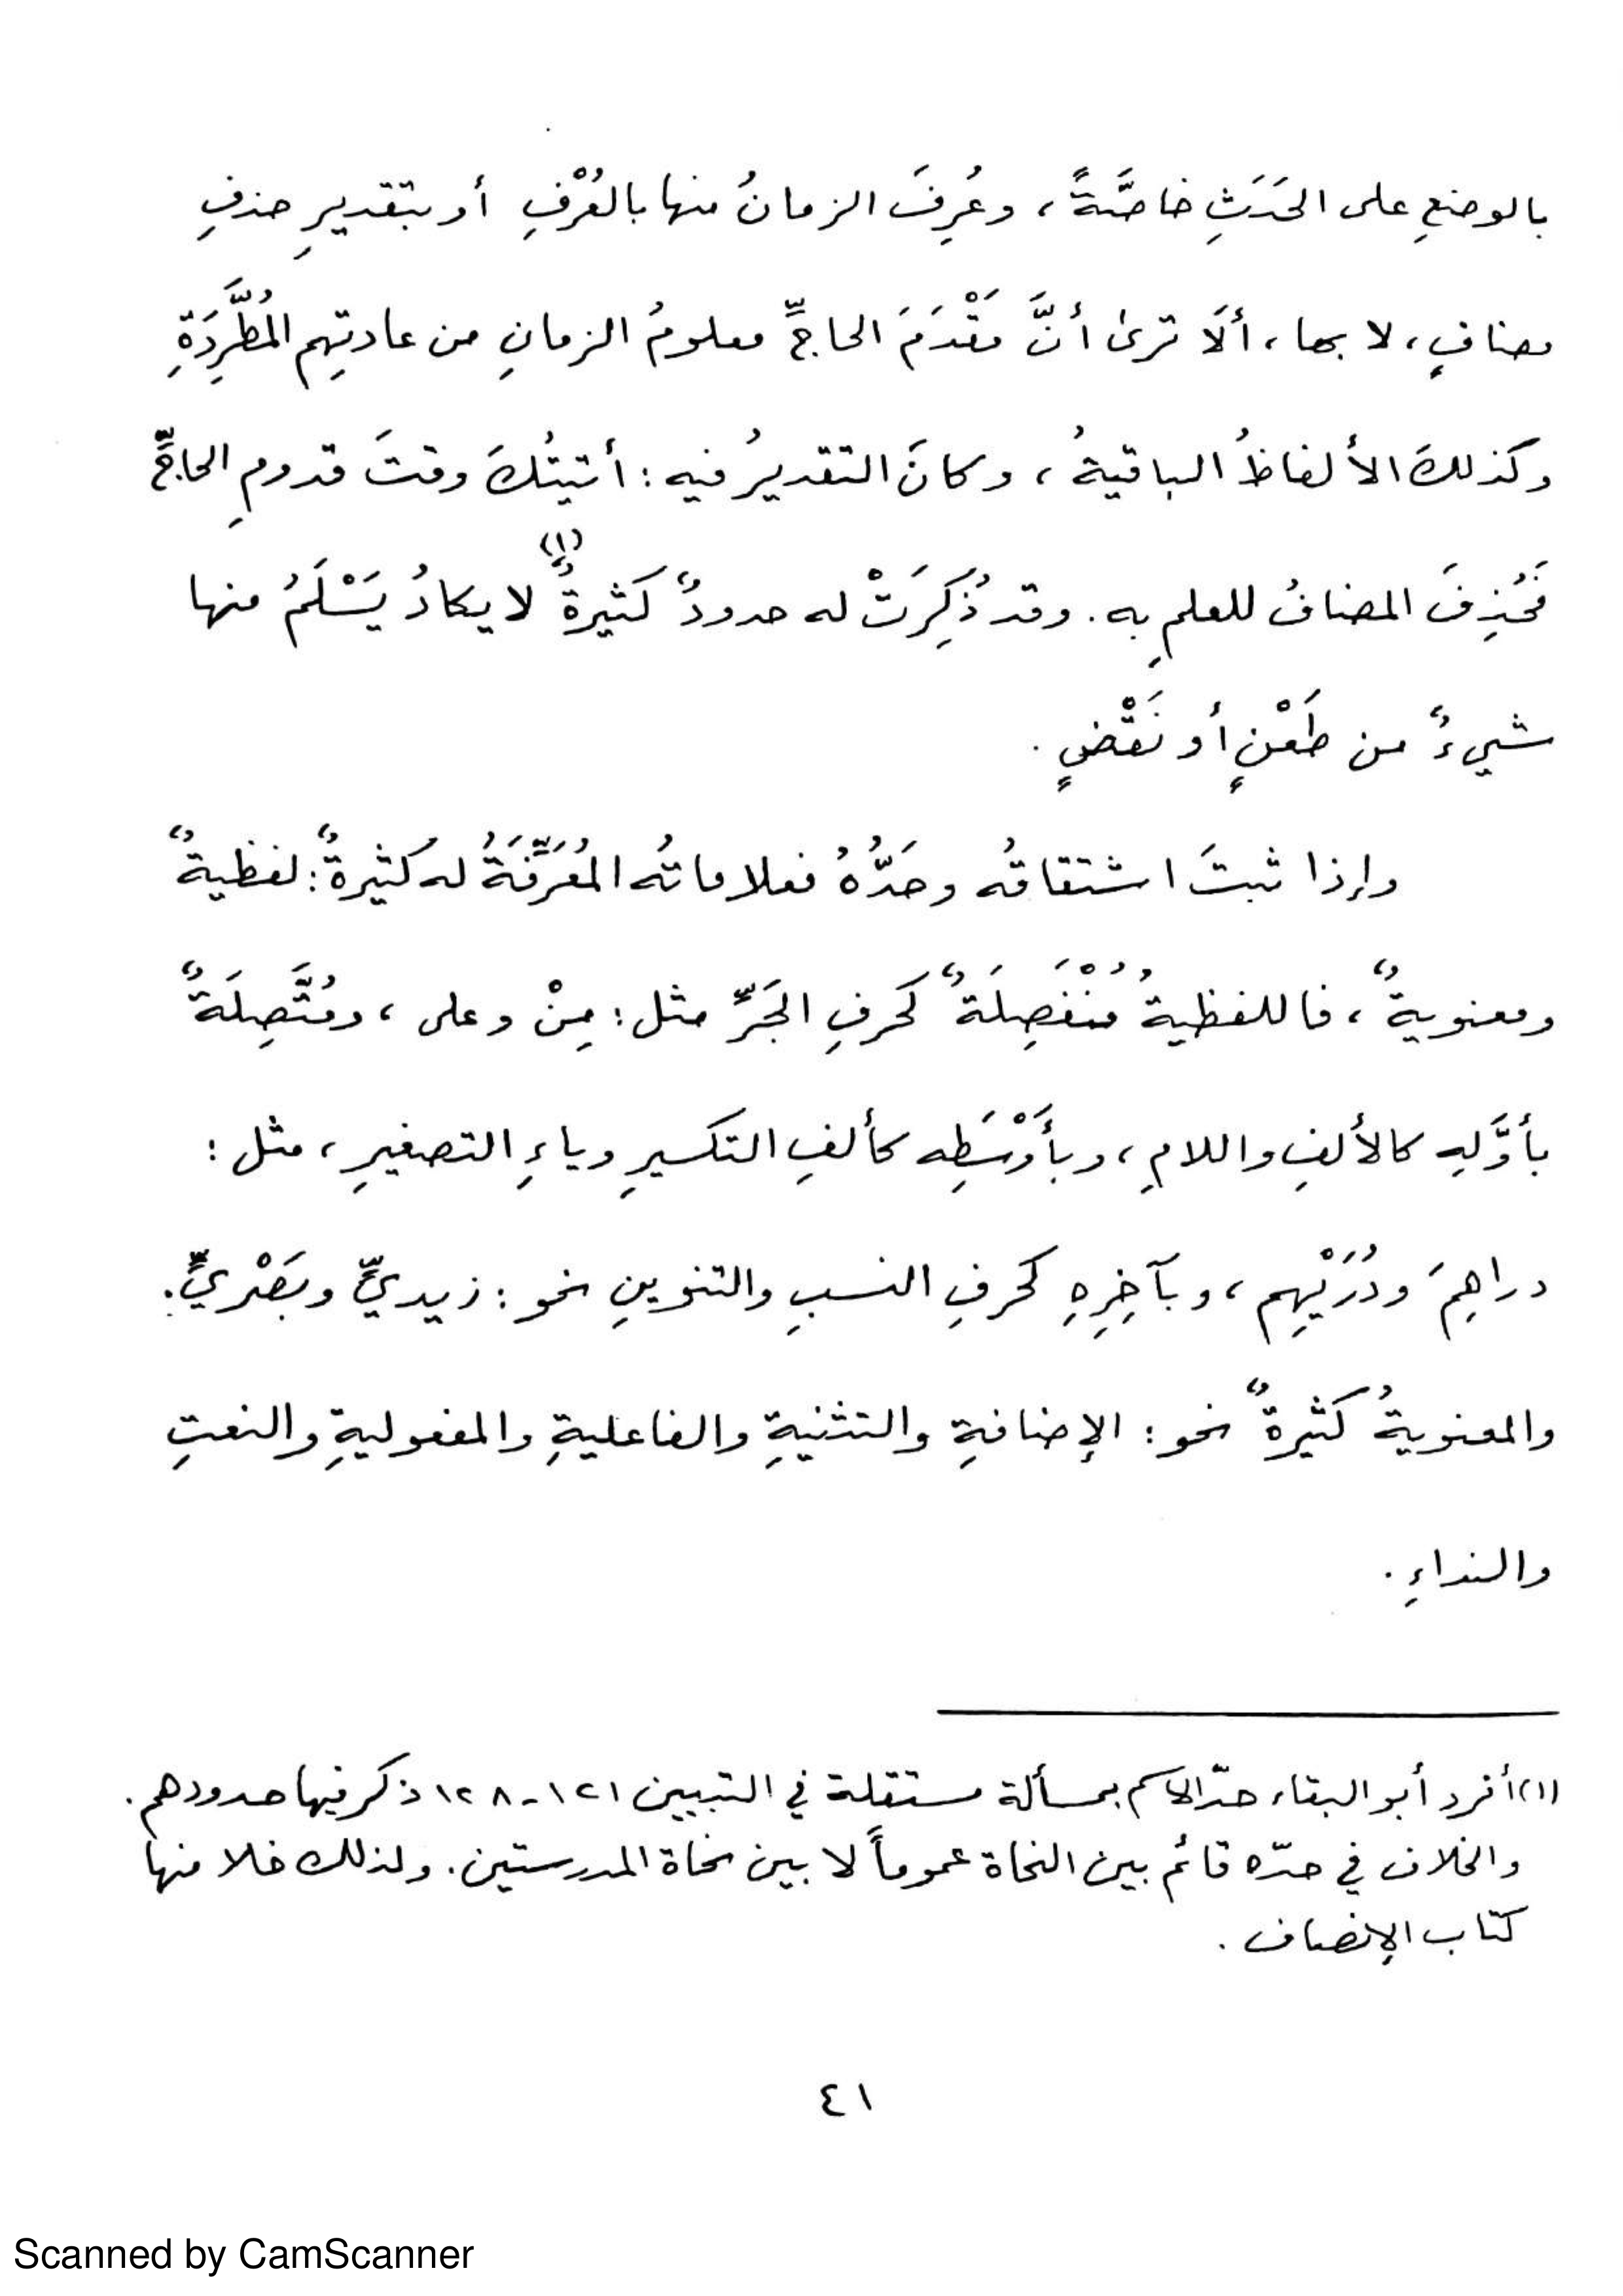 بالوضعِ على الحَدَثِ خاصَّةً، وعُرِفَ الزمانُ منها بالعُرْفِ أو بتقديرِ حذفِ
مضافٍ، لا بها، ألَا ترى أنَّ مَقْدَمَ الحاجِّ معلومُ الزمانِ من عادتِهم المُطَّرِدَةِ
وكذلكَ الألفاظُ الباقيةُ، وكانَ التقديرُ فيه: أتيتُكَ وقتَ قدومِ الحاجِّ
فَحُذِفَ المضافُ للعلمِ به. وقد ذُكِرَتْ له حدودٌ كثيرةٌ(١) لا يكادُ يَسْلَمُ منها
شيءٌ من طَعْنٍ أو نَقْضٍ.
وإذا ثبتَ اشتقاقُه وحَدُّهُ فعلاماتُه المُعَرِّفَةُ له كثيرةٌ: لفظيةٌ
ومعنويةٌ، فاللفظيةُ مُنْفَصِلَةٌ كحرفِ الجَرِّ مثل: مِنْ وعلى، ومُتَّصِلَةٌ
بأوَّلِه كالألفِ واللامِ، وبأَوْسَطِه كألفِ التكسيرِ وياءِ التصغيرِ، مثل:
دراهِمَ ودُرَيْهِم، وبآخِرِهِ كحرفِ النسبِ والتنوينِ نحو: زيديٍّ وبَصْريٍّ.
والمعنويةُ كثيرةٌ نحو: الإضافةِ والتثنيةِ والفاعليةِ والمفعوليةِ والنعتِ
والنداءِ.
(١) أفرد أبو البقاء حدّ الاسم بمسألة مستقلة في التبيين ١٢١-١٢٨ ذكر فيها حدودهم.
والخلاف في حدّه قائم بين النحاة عموماً لا بين نحاة المدرستين. ولذلك خلا منها
كتاب الإنصاف.
٤١
Scanned by CamScanner